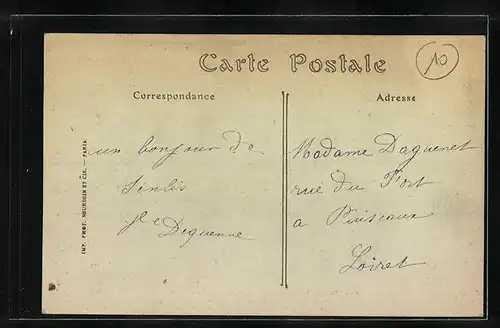 Carte Postale
10
Correspondance
Adresse
un bonjour de
Senlis
Deguenne
Madame Daguenet
rue du Fort
a Puiseaux
Loiret
IMP. PHOT. NEURDEIN ET CIE. — PARIS.